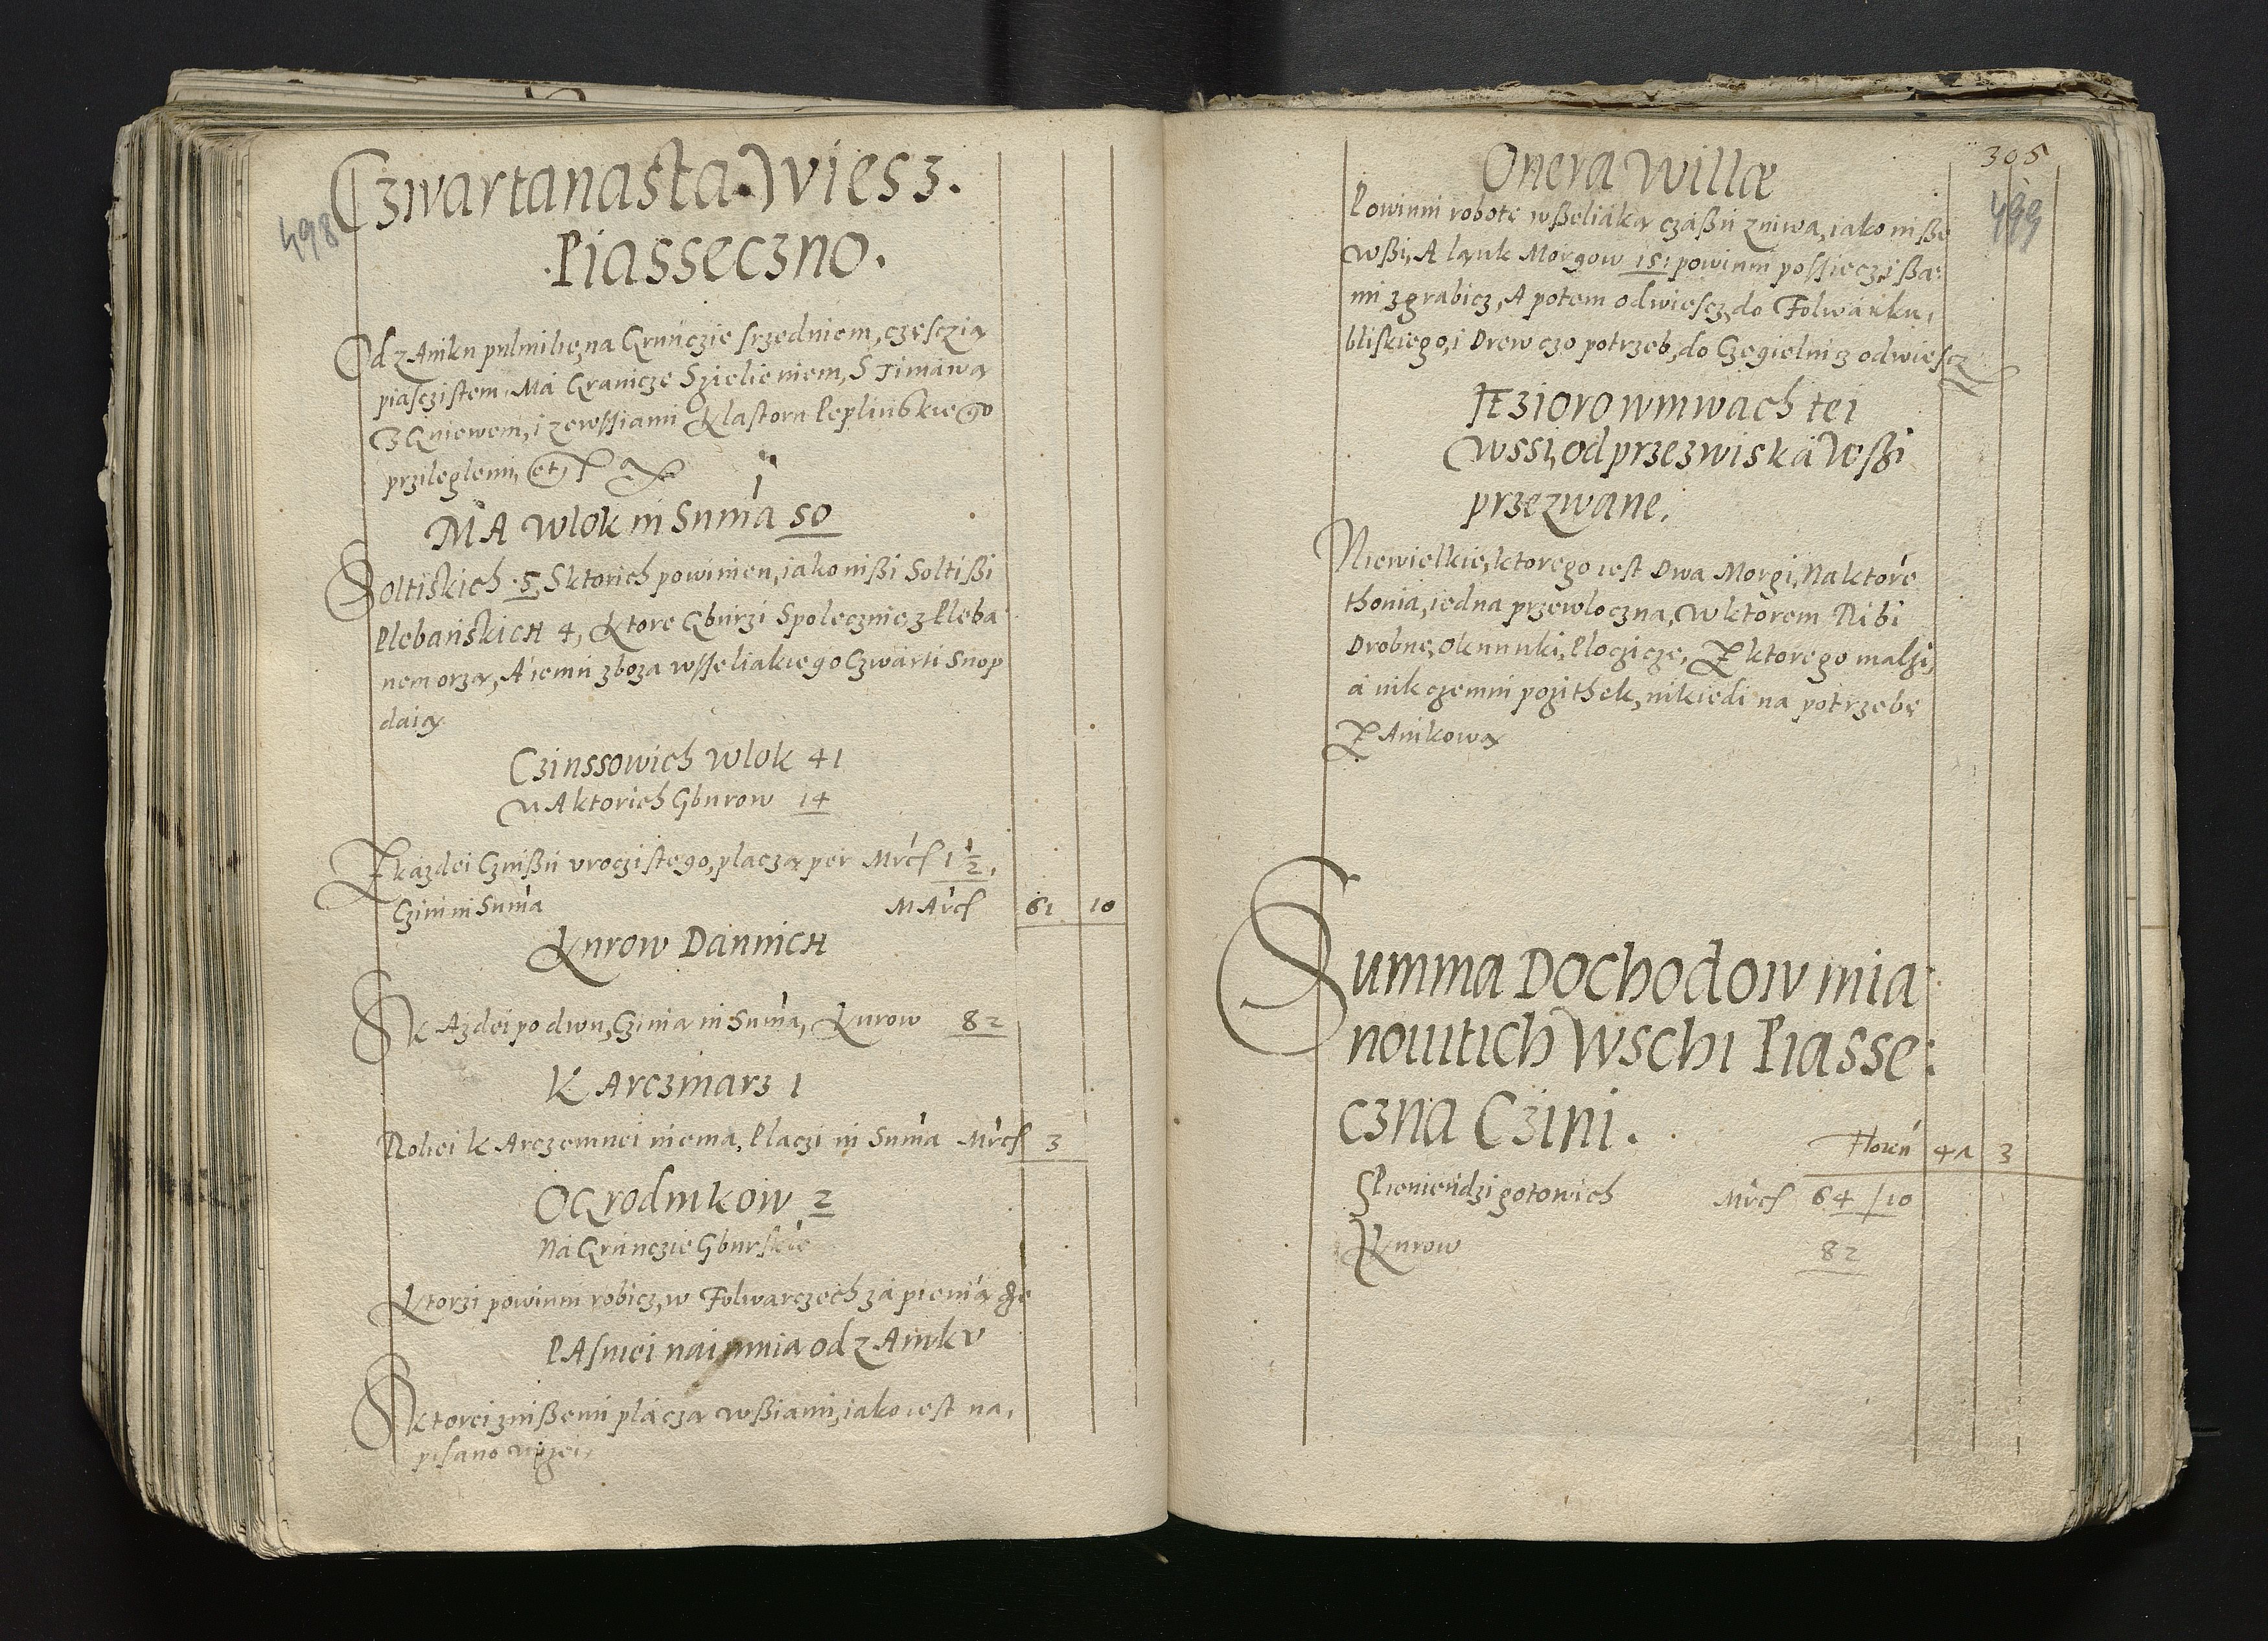 Czwartanasta Wiesz.
498
Piasseczno.
Od zAmku pulmilie, na Gruńczie srzedniem, częsczią
piasczistem. Má Granicze Szielieniem, S Timáwą
Z Gniewem, i zewssiami Klastoru Peplińskiego
przileglemi, et
MA Wlok in Suma 50
Soltiskich .5. Sktorich powinien, iako inßi Soltißi
Plebańskich 4, Ktore Gburzi Spolecznie z Pleba
nem orzą, A iemu zboza wsseliakiego Czwárti Snop
daią.
Czinssowich Wlok 41
nAktorich Gburow 14
Z kazdei Czinßu vroczistego, placzą per Mrcſ 1 1/2,
Czini in Suma MArcſ 61 10
Kurow Dannich
Sk Azdei po dwu, Czinią in Suma, Kurow 82
K Arczmarz 1
Roliei k Arczemnei niema, Placzi in Suma Mrcſ 3
OGrodnikow 2
Ná Gruńczie Gburskie
Ktorzi powinni robicz, w Folwarczech zá pieniądze
PAsniei naimuia od zAmkv
Sktorei z inßemi plácza wßiami, iako iest na,
pisano wyzei,
305
Onera Willæ
499
Powinni robotę wßeliáką czáßu zniwa, iako inße
wßi, A ląnk Morgow 15 powinni possiecz, i ßa:
mi zgrabicz, A potem odwiescz do Folwárku,
bliskiego, i Drew czo potrzeb, do Czegielni z odwiescz
IEzioro wmwach tei
Wssi, od przezwiská Wßi
przezwane.
Niewielkie, ktorego iest Dwa Morgi, Náktore
thonia, iedna przewloczna, W ktorem Ribi
Drobne, Okunuki, Ploczicze, Z ktorego malzi,
á nikczemni pozithek, nikiedi na potrzebę
ZAmkową
Summa Dochodow mia
nowitich Wschi Piasse:
czna Czini.
Floren 41 3
Pieniendzi gotowich Mrcſ 64 / 10
Kurow 82